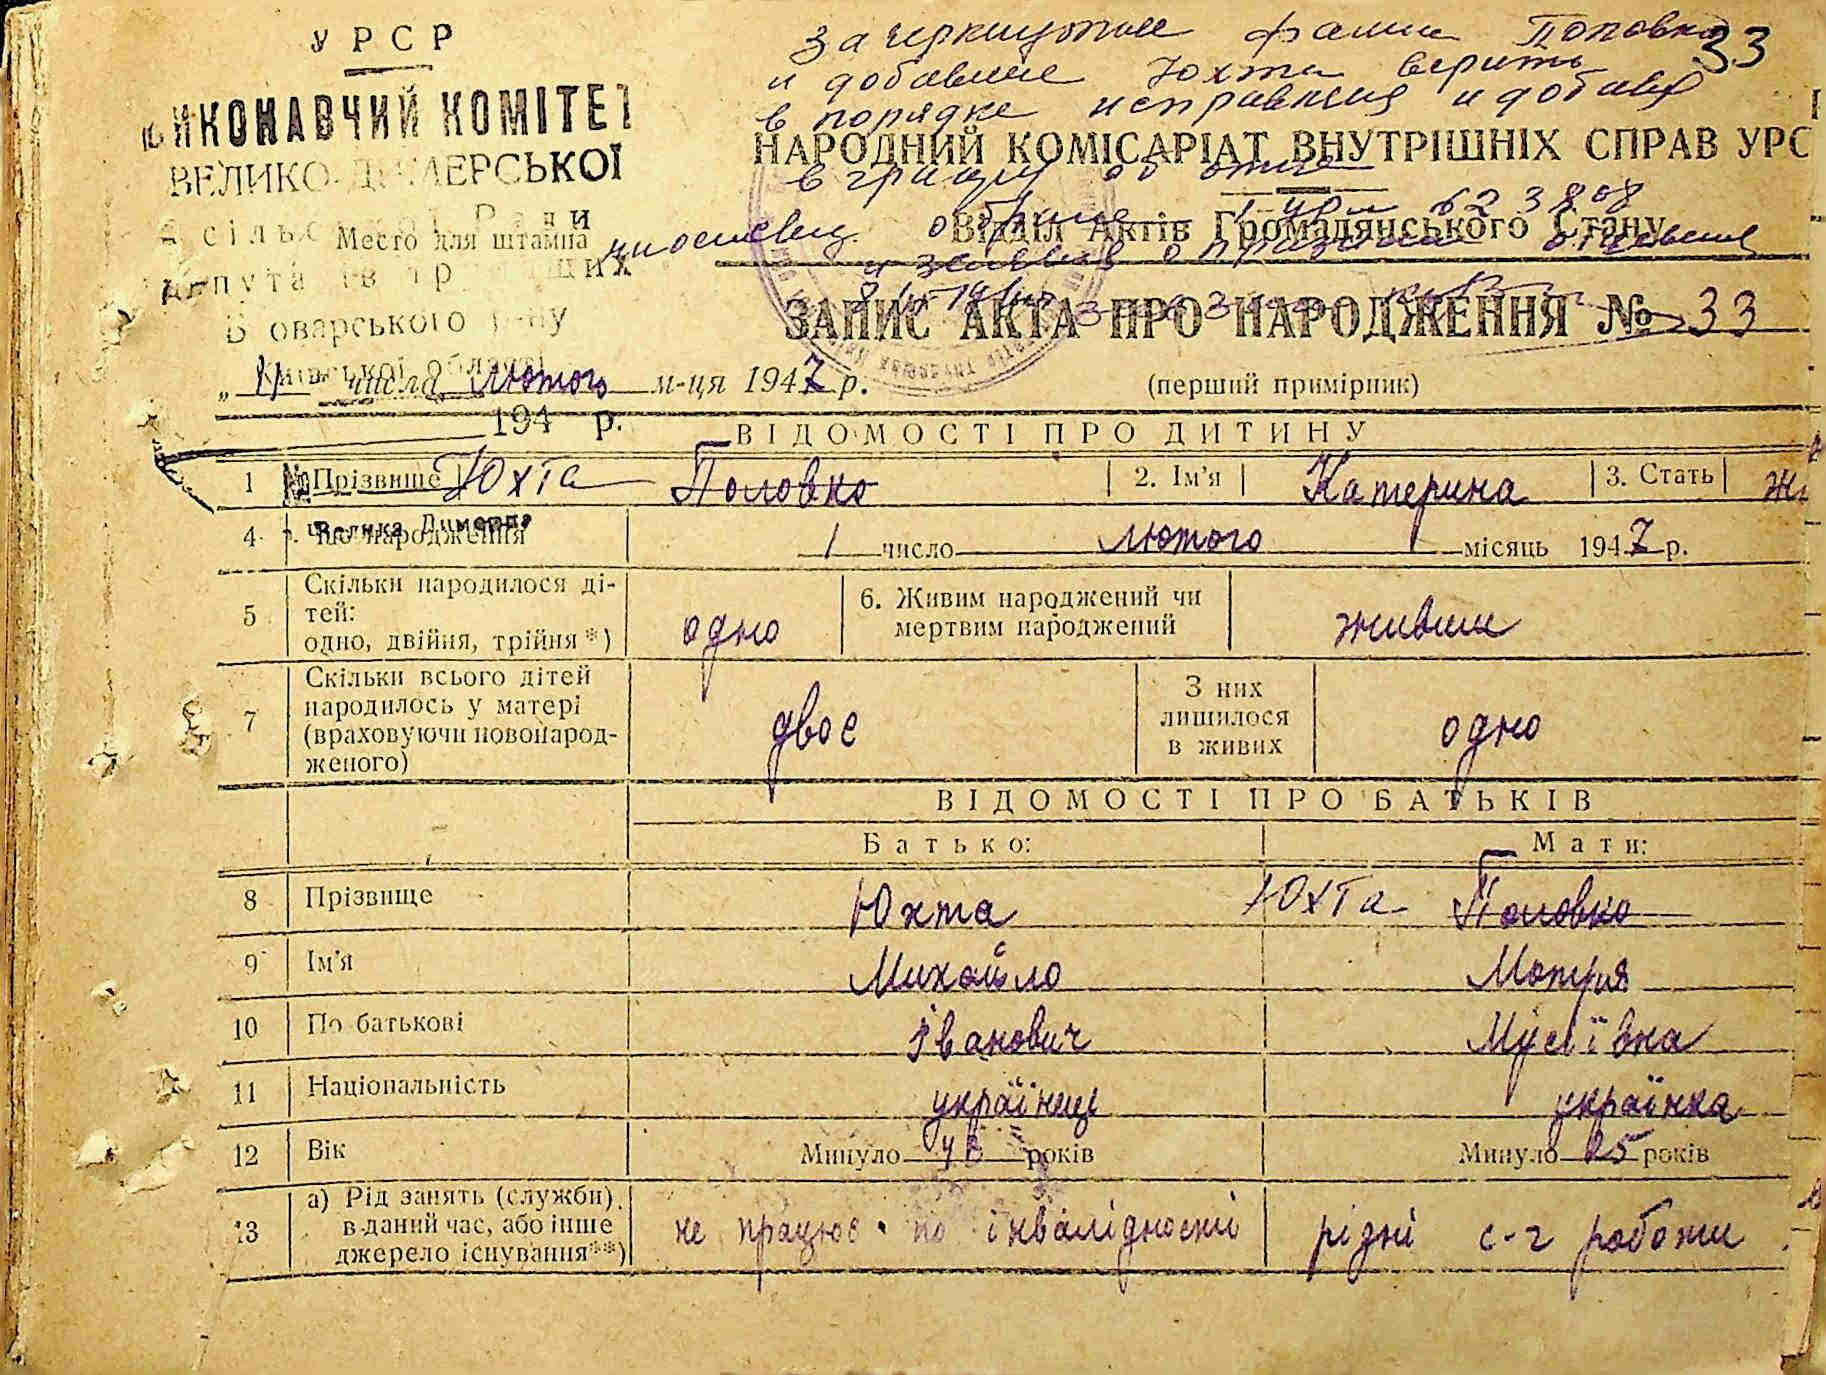 УРСР
ВИКОНАВЧИЙ КОМІТЕТ
ВЕЛИКО-ДИМЕРСЬКОЇ
сільської Ради
Место для штампа
депутатів трудящих
Броварського р-ну
Київської області
194 р.
№
с. Велика Димерка
33
Зачеркнутое фамил Половко
и добавлено Юхта верить
в порядке исправления и добавл
в графу об отце
НАРОДНИЙ КОМІСАРІАТ ВНУТРІШНІХ СПРАВ УРС
Відділ Актів Громадянського Стану
ЗАПИС АКТА ПРО НАРОДЖЕННЯ № 33
„ 11 " числа лютого м-ця 1947 р.
(перший примірник)
ВІДОМОСТІ ПРО ДИТИНУ
1 Прізвище Юхта Половко 2. Ім'я Катерина 3. Стать
4 народження 1 число лютого місяць 1947 р.
5 Скільки народилося ді-
тей:
одно, двійня, трійня *) одно
6. Живим народжений чи
мертвим народжений живим
7 Скільки всього дітей
народилось у матері
(враховуючи новонарод-
женого) двоє
З них
лишилося
в живих одно
ВІДОМОСТІ ПРО БАТЬКІВ
Батько: Мати:
8 Прізвище Юхта Юхта Половко
9 Ім'я Михайло Мотря
10 По батькові Іванович Мусіївна
11 Національність українець українка
12 Вік Минуло років Минуло 25 років
13 а) Рід занять (служби)
в даний час, або інше
джерело існування **) не працює по інвалідности різні с-г роботи